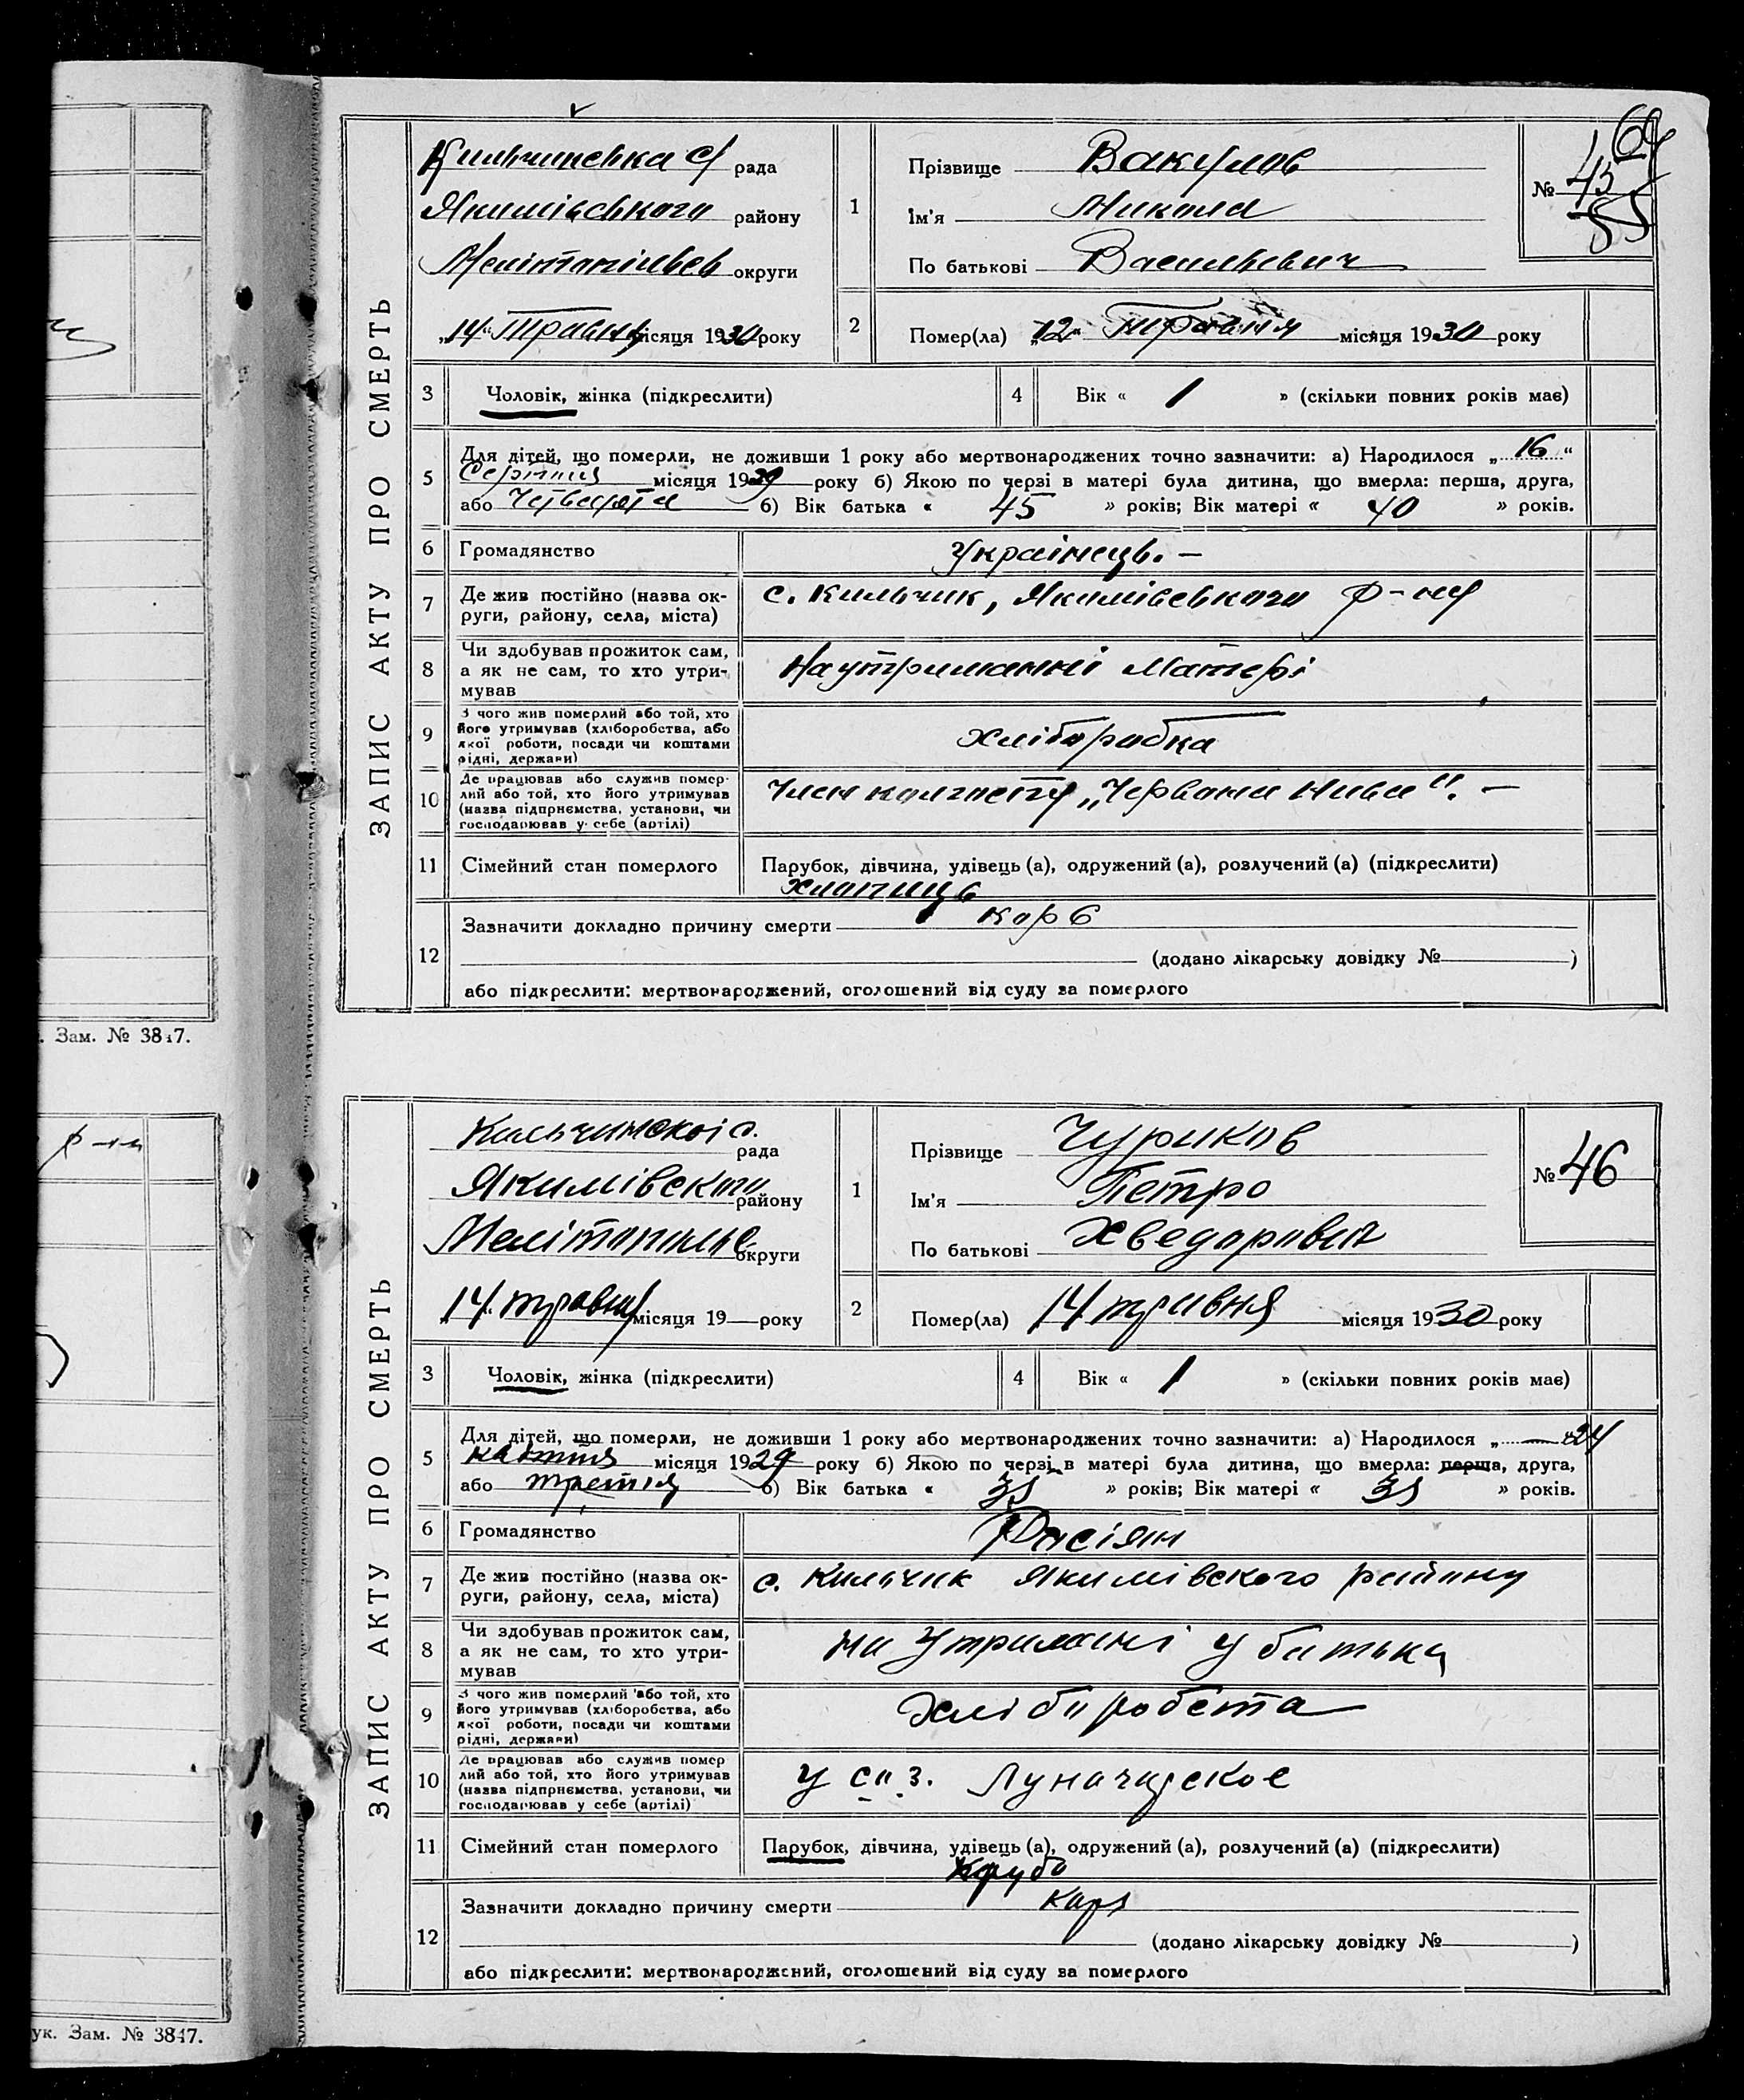 ЗАПИС АКТУ ПРО СМЕРТЬ
Кильчинська с/рада
Якимівського району
Мелітопільськ округи
„14“ Травня місяця 1930 року
1
Прізвище Вакулов
Ім'я Микола
По батькові Васильевич
№ 45
69
2
Помер(ла) „12“ Травня місяця 1930 року
3
Чоловік, жінка (підкреслити)
4
Вік « 1 » (скільки повних років має)
5
Для дітей, що померли, не доживши 1 року або мертвонароджених точно зазначити: а) Народилося „16“
Серпня місяця 1929 року б) Якою по черзі в матері була дитина, що вмерла: перша, друга,
або Четверта б) Вік батька « 45 » років; Вік матері « 40 » років.
6
Громадянство
Українець. —
7
Де жив постійно (назва ок-
руги, району, села, міста)
с. Кильчик, Якимівського р-ну
8
Чи здобував прожиток сам,
а як не сам, то хто утри-
мував
На утриманні Матері
9
З чого жив померлий або той, хто
його утримував (хліборобства, або
якої роботи, посади чи коштами
рідні, держави)
хліборобка
10
Де працював або служив помер-
лий або той, хто його утримував
(назва підприємства, установи, чи
господарював у себе (артілі)
Член колгоспу „Червона Нива“. —
11
Сімейний стан померлого
Парубок, дівчина, удівець (а), одружений (а), розлучений (а) (підкреслити)
хлопець
12
Зазначити докладно причину смерти кор
(додано лікарську довідку № )
або підкреслити: мертвонароджений, оголошений від суду за померлого
. Зам. № 3847.
ЗАПИС АКТУ ПРО СМЕРТЬ
Кильчинскої с. рада
Якимівского району
Мелітопильс округи
„14“ травня місяця 19 року
1
Прізвище Чуриков
Ім'я Петро
По батькові Хведорович
№ 46
2
Помер(ла) 14 травня місяця 1930 року
3
Чоловік, жінка (підкреслити)
4
Вік « 1 » (скільки повних років має)
5
Для дітей, що померли, не доживши 1 року або мертвонароджених точно зазначити: а) Народилося „ — “ 24
місяця 1929 року б) Якою по черзі в матері була дитина, що вмерла: перша, друга,
або третія б) Вік батька « 35 » років; Вік матері « 35 » років.
6
Громадянство
Росіян
7
Де жив постійно (назва ок-
руги, району, села, міста)
с. Кильчик Якимівского району
8
Чи здобував прожиток сам,
а як не сам, то хто утри-
мував
на Утримані у батька
9
З чого жив померлий або той, хто
його утримував (хліборобства, або
якої роботи, посади чи коштами
рідні, держави)
10
Де працював або служив помер
лий або той, хто його утримував
(назва підприємства, установи, чи
господарював у себе (артілі)
у соз. Луначарское
11
Сімейний стан померлого
Парубок, дівчина, удівець (а), одружений (а), розлучений (а) (підкреслити)
12
Зазначити докладно причину смерти
(додано лікарську довідку № )
або підкреслити: мертвонароджений, оголошений від суду за померлого
р-н
ук. Зам. № 3847.